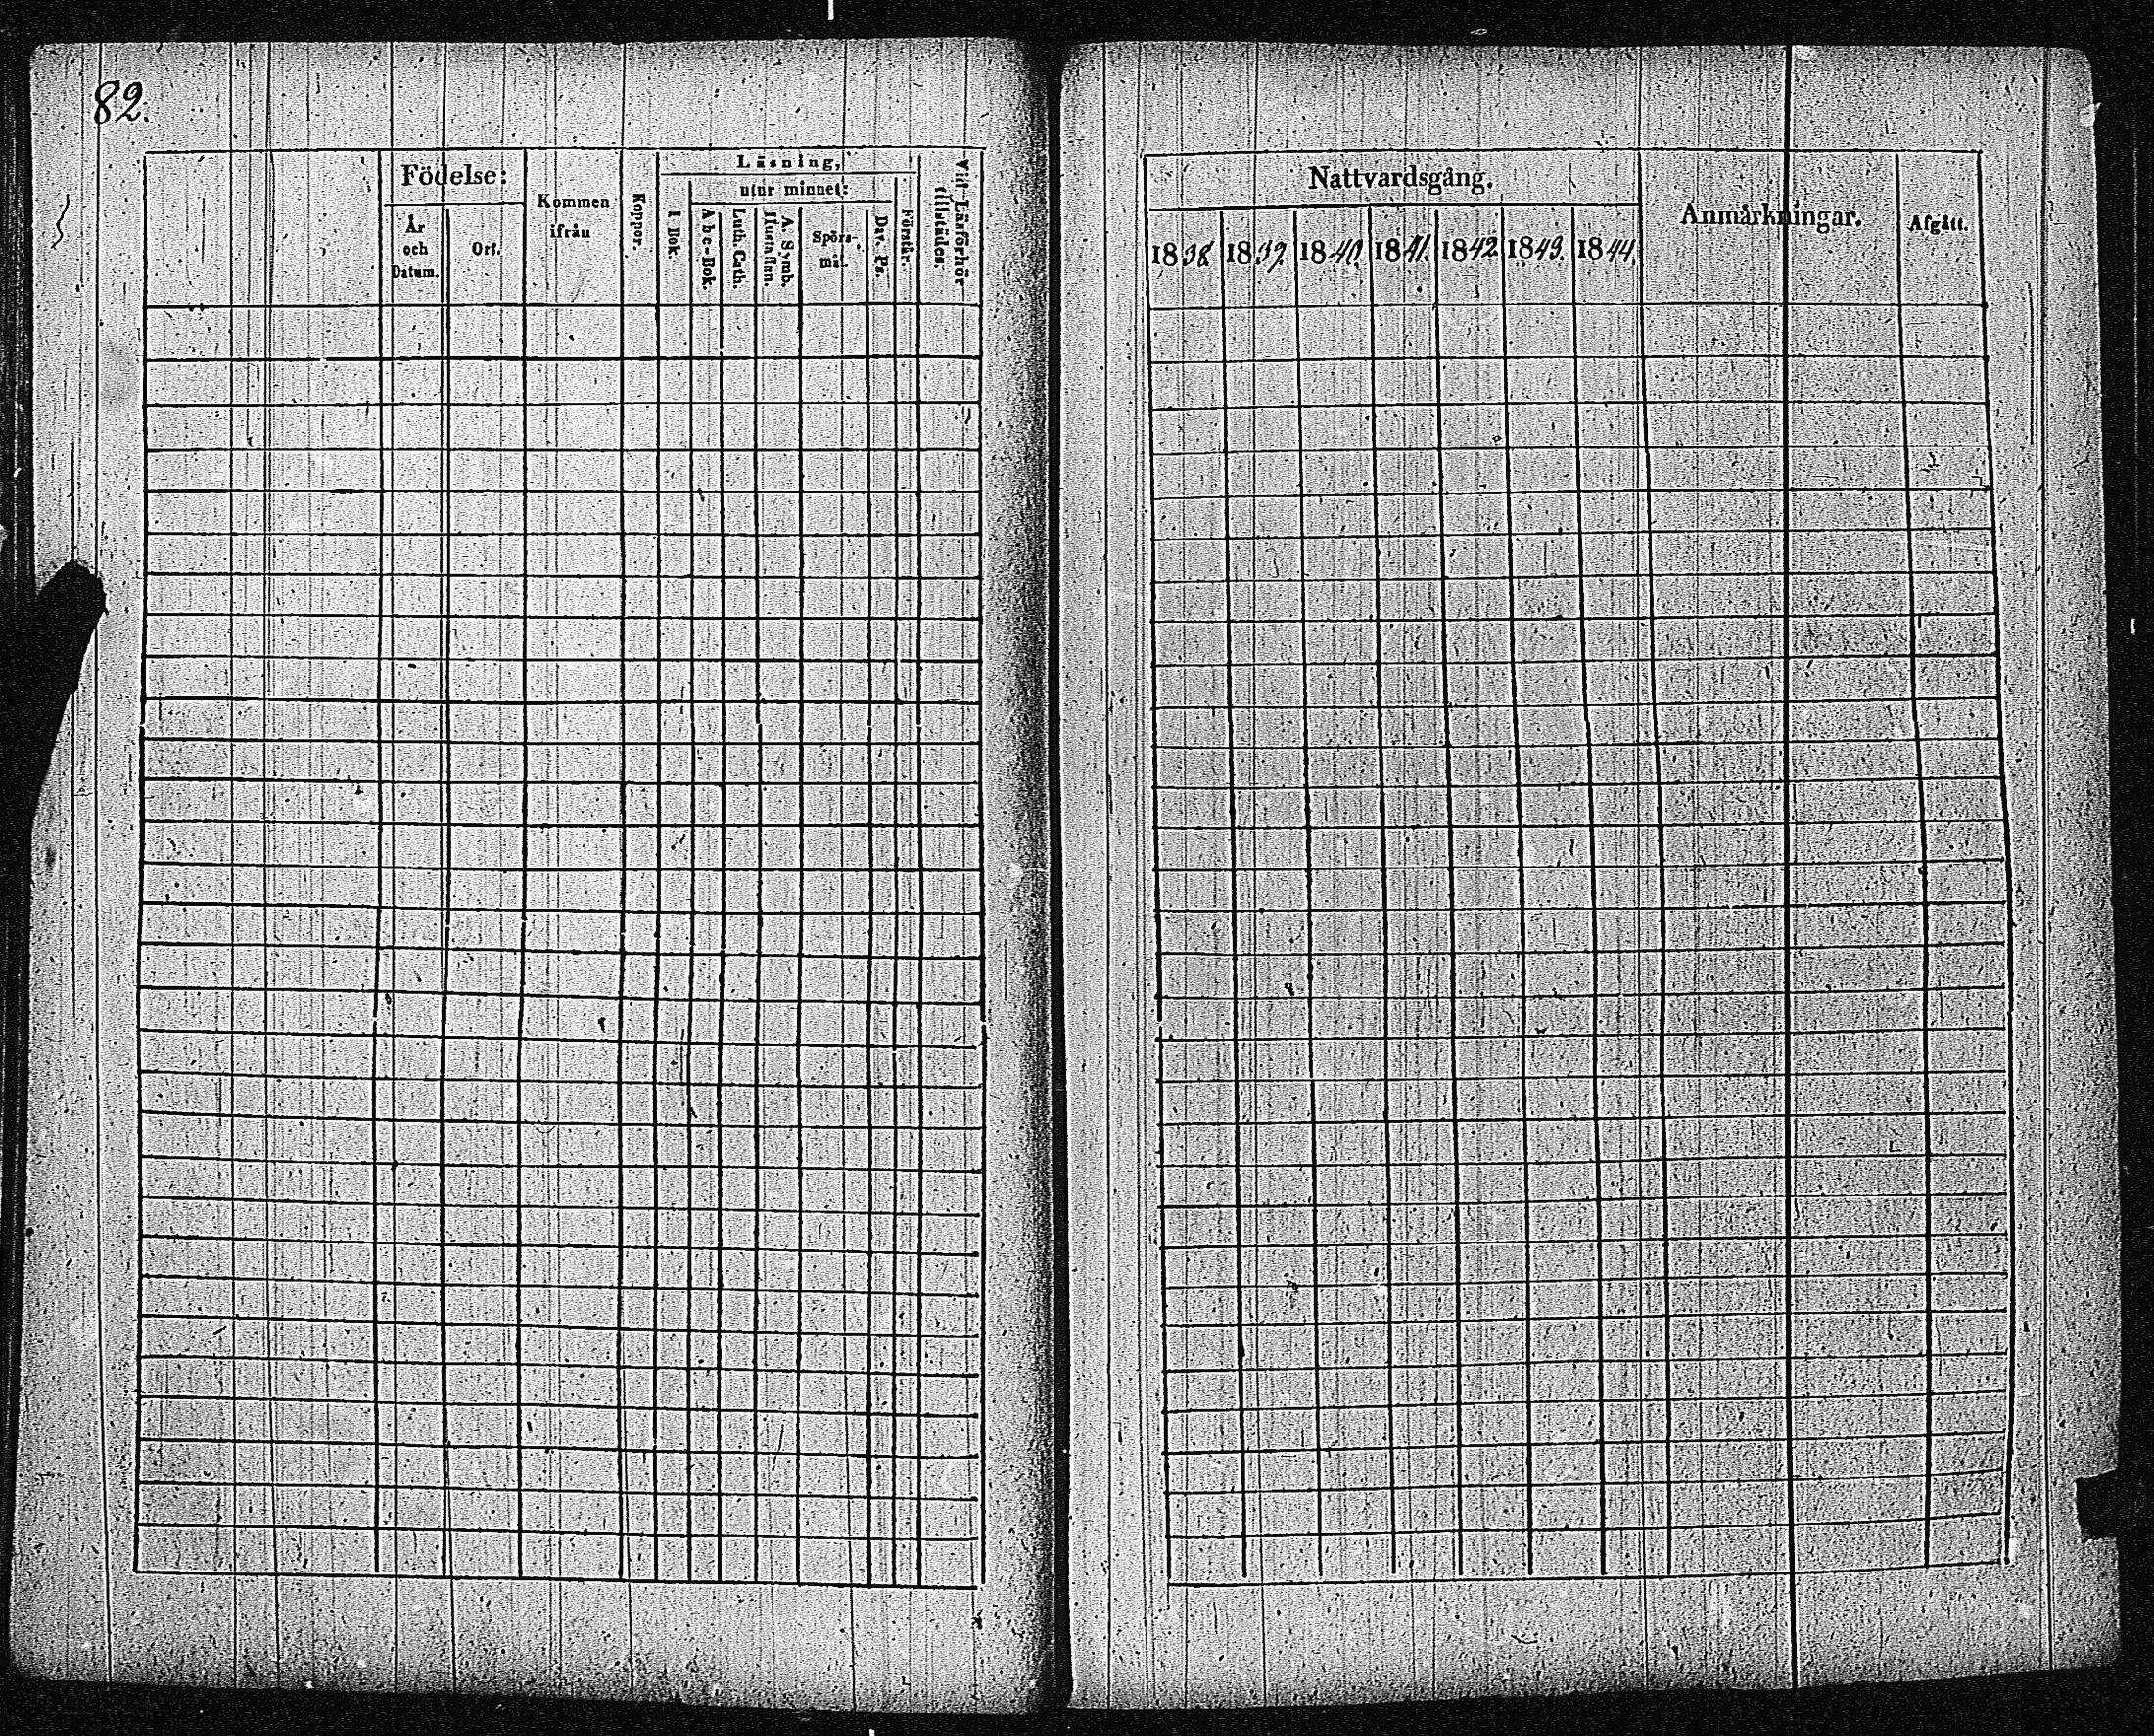 82.
Födelse:
År och Datum.
Ort.
Kommen ifrån
Koppor.
Läsning,
utur minnet:
I Bok.
Abc-Bok.
Luth. Cath.
A. Symb. Hustaflan.
Spörs-mål.
Dav. Ps.
Förstår.
Vid Läsförhör tillstädes.
Nattvardsgång.
1838.
1839.
1840.
1841.
1842
1843.
1844.
Anmärkningar.
Afgått.